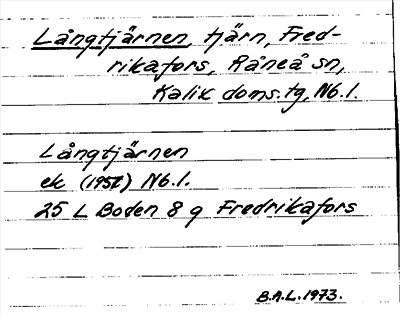 Långtjärnen, tjärn, Fred-
rikafors, Råneå sn,
Kalix doms.tg, Nb.l.
Långtjärnen
ek (1957) Nb.l.
25 L Boden 8 g Fredrikafors
B.A.L.1973.